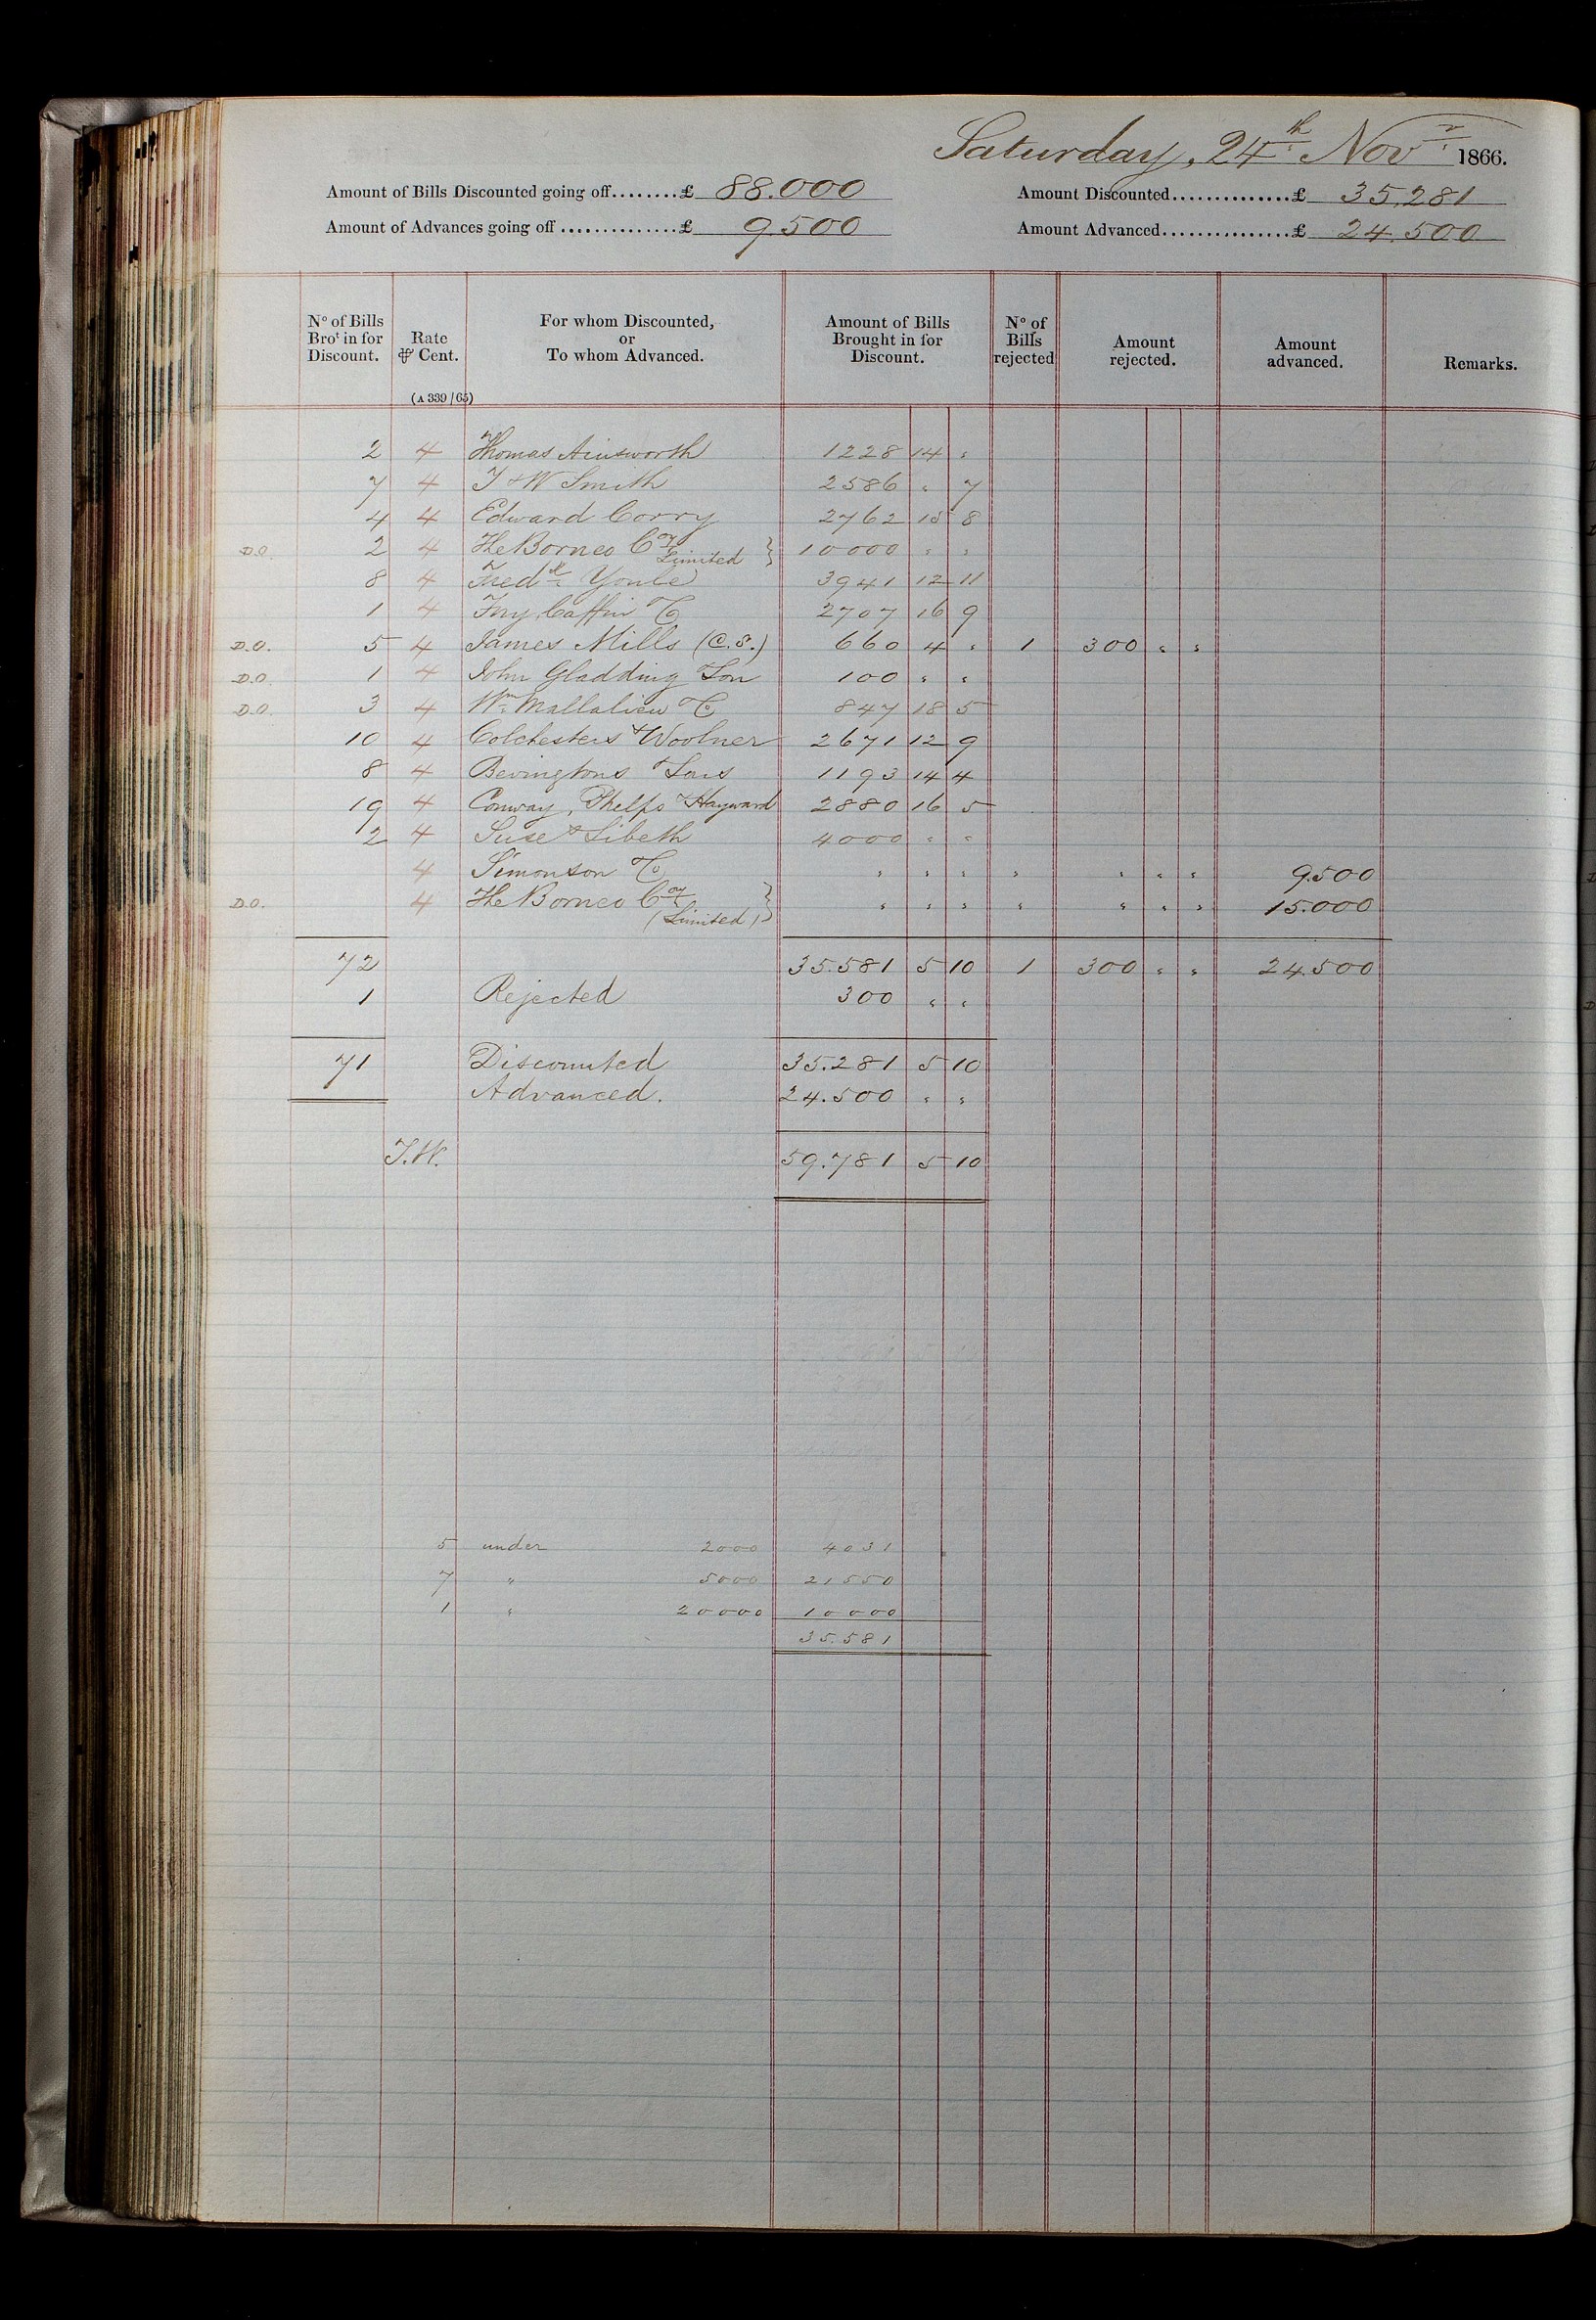 Saturday, 24th Novr 1866.
Amount of Bills Discounted going off........£ 88.000 Amount Discounted...............£ 35.281
Amount of Advances going off ..............£ 9.500 Amount Advanced................£ 24.500
No of Bills Brot in for Discount. Rate ⅌ Cent. For whom Discounted, or To whom Advanced. Amount of Bills Brought in for Discount. No of Bills rejected Amount rejected. Amount advanced. Remarks.
(A 339 / 65)
2 4 Thomas Ainsworth 1228 14 "
7 4 T & W Smith 2586 " 7
4 4 Edward Corry 2762 15 8
D.O. 2 4 The Borneo Coy Limited } 10000 " "
8 4 Fredk Youle 3941 12 11
1 4 Fry, Caffin & Co 2707 16 9
D.O. 5 4 James Mills (C.S.) 660 4 " 1 300 " "
D.O. 1 4 John Gladding & Son 100 " "
D.O. 3 4 Wm Mallalieu & Co 847 18 5
10 4 Colchesters & Woolner 2671 12 9
8 4 Bevingtons & Sons 1193 14 4
19 4 Conway, Phelps & Hayward 2880 16 5
2 4 Suse & Sibeth 4000 " "
4 Simonson & Co " " " " " " " 9.500
D.O. 4 The Borneo Coy (Limited) } " " " " " " " 15.000
72 35.581 5 10 1 300 " " 24.500
1 Rejected 300 " "
71 Discounted 35.281 5 10
Advanced. 24.500 " "
T.W. 59.781 5 10
5 under 2000 4031
7 " 5000 21550
1 " 20000 10000
35.581